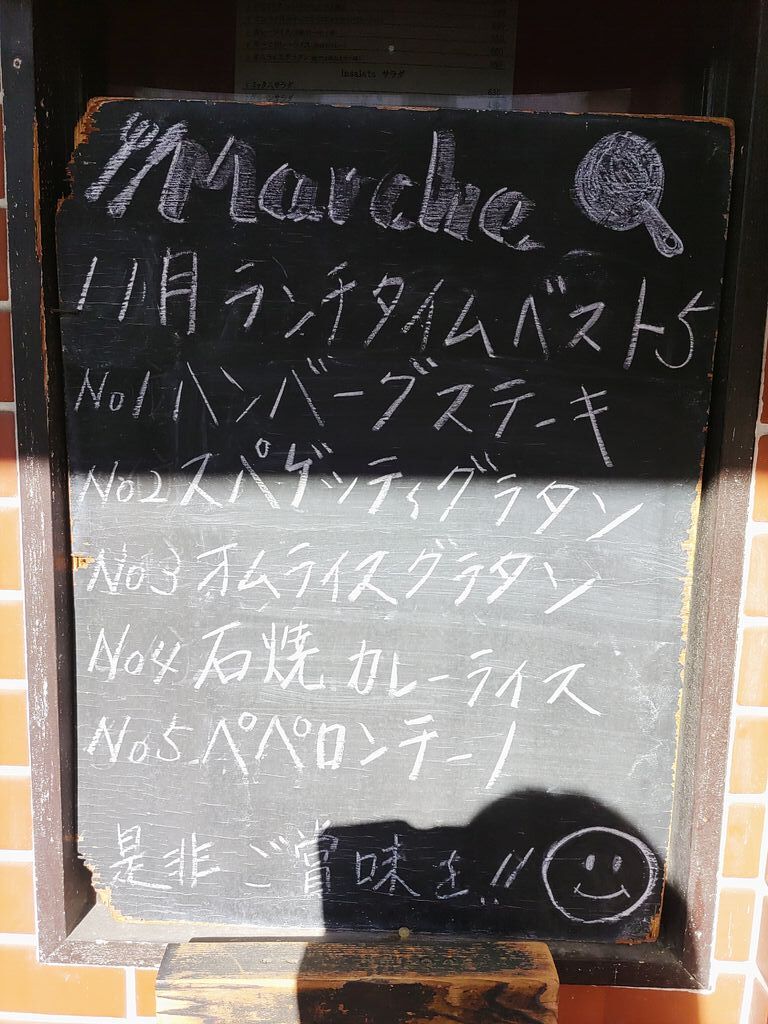 Marche
11月 ランチタイム ベスト5
No1 ハンバーグステーキ
No2 スパゲッティグラタン
No3 オムライスグラタン
No4 石焼 カレーライス
No5 ペペロンテーノ
是非 ご賞味を!!
Insalata サラダ